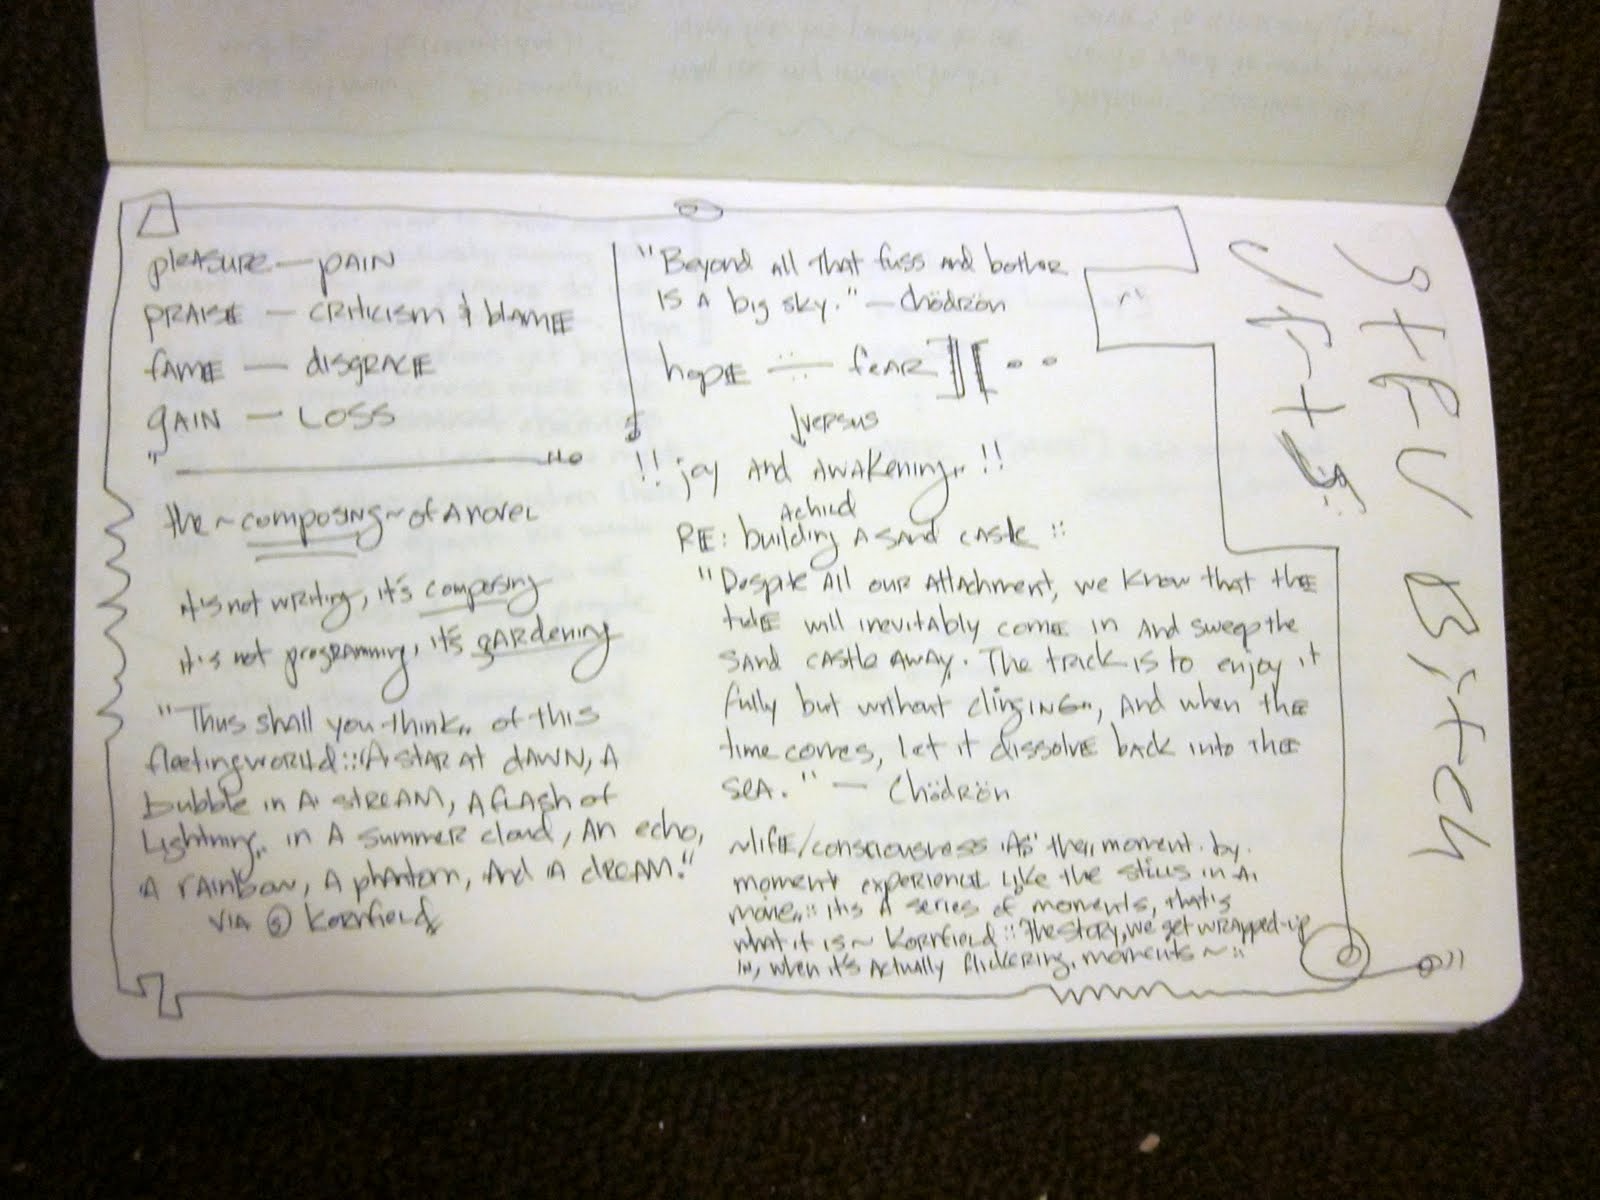 pleasure — pain
praise — criticism & blame
fame — disgrace
gain — loss
the ~composing~ of a novel
it's not writing, it's composing
it's not programming, it's gardening
"Thus shall you think,, of this
fleeting world :: A star at dawn, a
bubble in a stream, a flash of
lightning,, in a summer cloud, an echo,
a rainbow, a phantom, and a dream."
via @ Kornfield
"Beyond all that fuss and bother
is a big sky." — Chödrön
hope — fear ][ • •
versus
!! joy and awakening,, !!
a child
RE: building a sand castle ::
"Despite all our attachment, we know that the
tide will inevitably come in and sweep the
sand castle away. The trick is to enjoy it
fully but without clinging,, and when the
time comes, let it dissolve back into the
sea." — Chödrön
~life/consciousness as the,, moment.by.
moment experience like the stills in a
movie,, :: it's a series of moments, that's
what it is ~ Kornfield :: The story, we get wrapped-up
in, when it's actually flickering, moments ~ ::
STFU Bitch